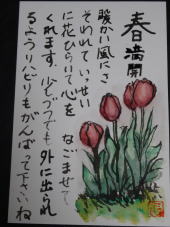 春満開
暖かい風にさ
そわれていっせい
に花ひらいて心を なごませて
くれます。少しづつでも外に出られ
るようリハビリもがんばって下さいね